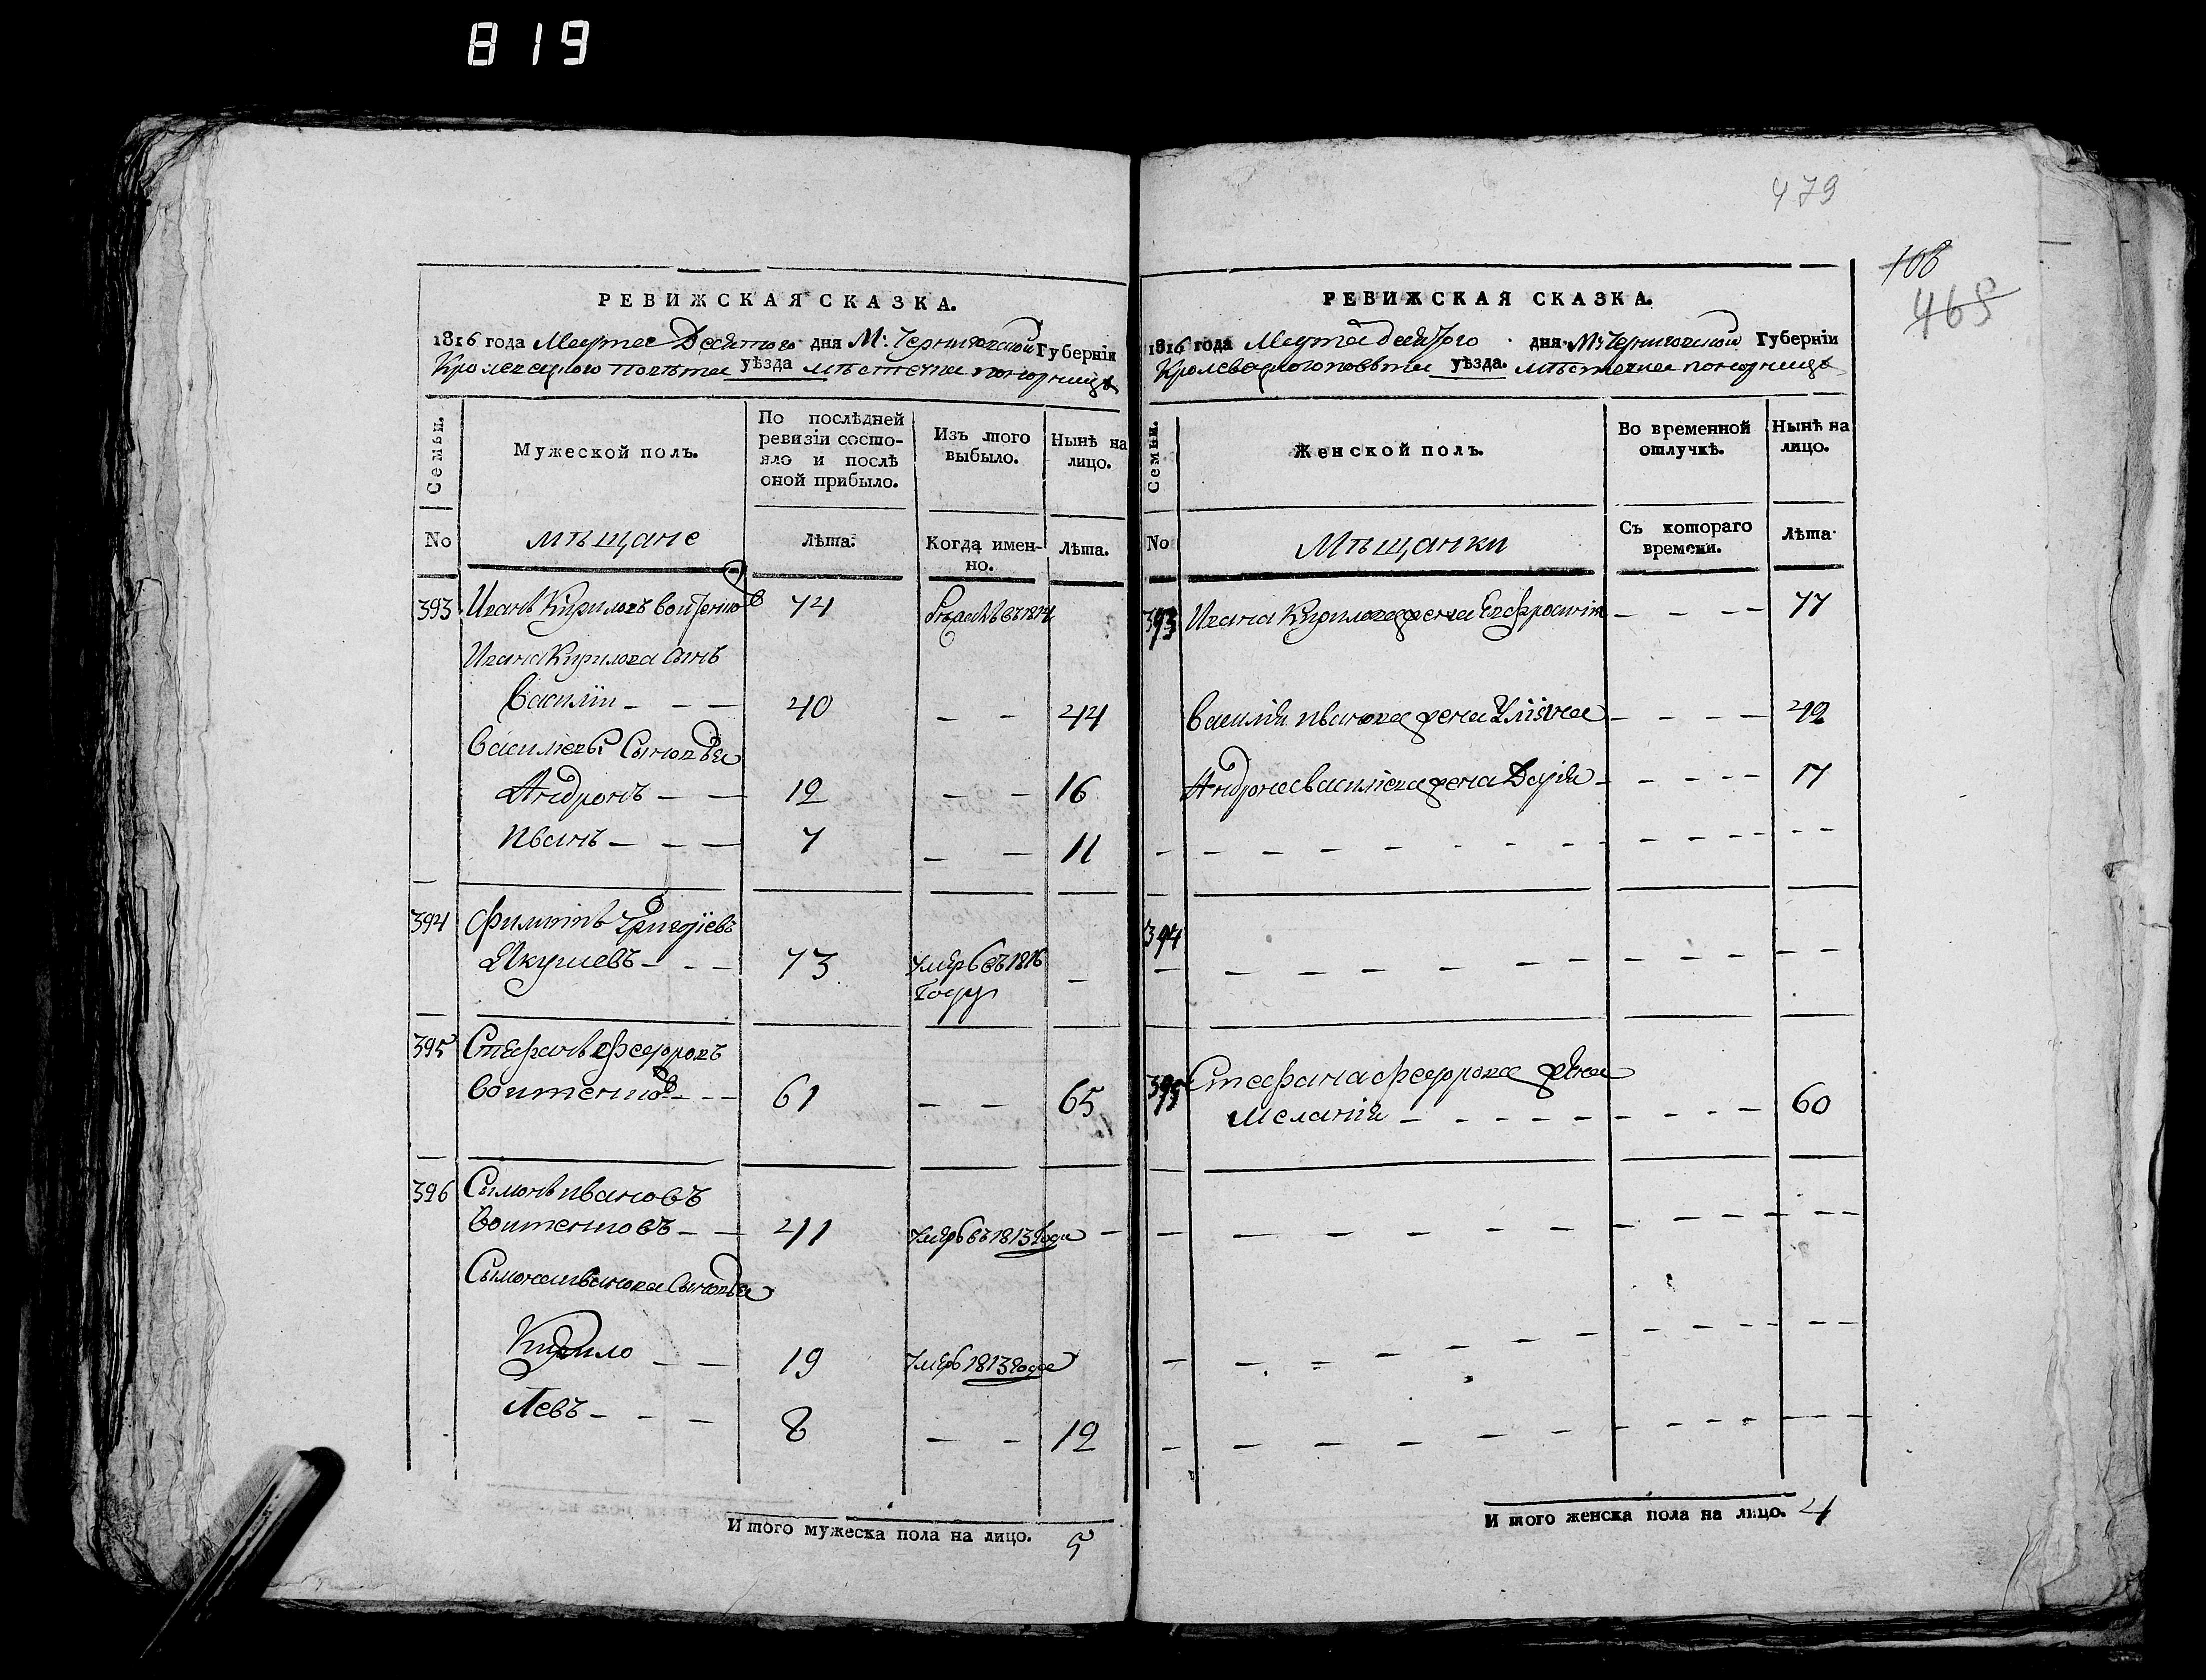 819
479
106
465
РЕВИЖСКАЯ СКАЗКА.
1816 года Марта Десятого дня М: Черниговской Губерніи
Кролевецкого повѣта уѣзда мѣстечка понорницѣ
Семьи.
Мужеской полъ.
По послѣдней
ревизіи состо-
яло и послѣ
оной прибыло.
Изъ того
выбыло.
Нынѣ на
лицо.
No
мѣщане
Лѣта.
Когда имен-
но.
Лѣта.
393 Иванъ Кириловъ воитенко 74 въ 1814
Ивана Кирилова сынъ
Василіи — — — 40 — — 44
Василіевы Сыновья
Андронъ — — 12 — — 16
Иванъ — — — 7 — — 11
394 Филиппъ Григоріевъ
Якушевъ — — — 73 умеръ въ 1816 —
году
395 Стефанъ Федоровъ
воитенковъ — — 61 — — 65
396 Симонъ ивановъ
воитенковъ — — 41 умеръ въ 1813 года —
Симона иванова Сыновья
Кирило — — 19 умеръ 1813 года
Левъ — — — 8 — — 12
Итого мужеска пола на лицо. 5
РЕВИЖСКАЯ СКАЗКА.
1816 года Марта десятого дня М: Черниговской Губерніи
Кролевецкого повѣта уѣзда. мѣстечка понорницѣ
Семьи.
Женской полъ.
Во временной
отлучкѣ.
Нынѣ на
лицо.
No
Мѣщанки
Съ котораго
времени.
Лѣта.
393 Ивана Кирилова жена Евфросинія — — — — 77
Василія иванова жена Уліяна — — — — 42
Андрона василіева жена Дарія — — — — — 17
394
395 Стефана федорова жена
Меланія — — — — — — — — — 60
Итого женска пола на лицо. 4